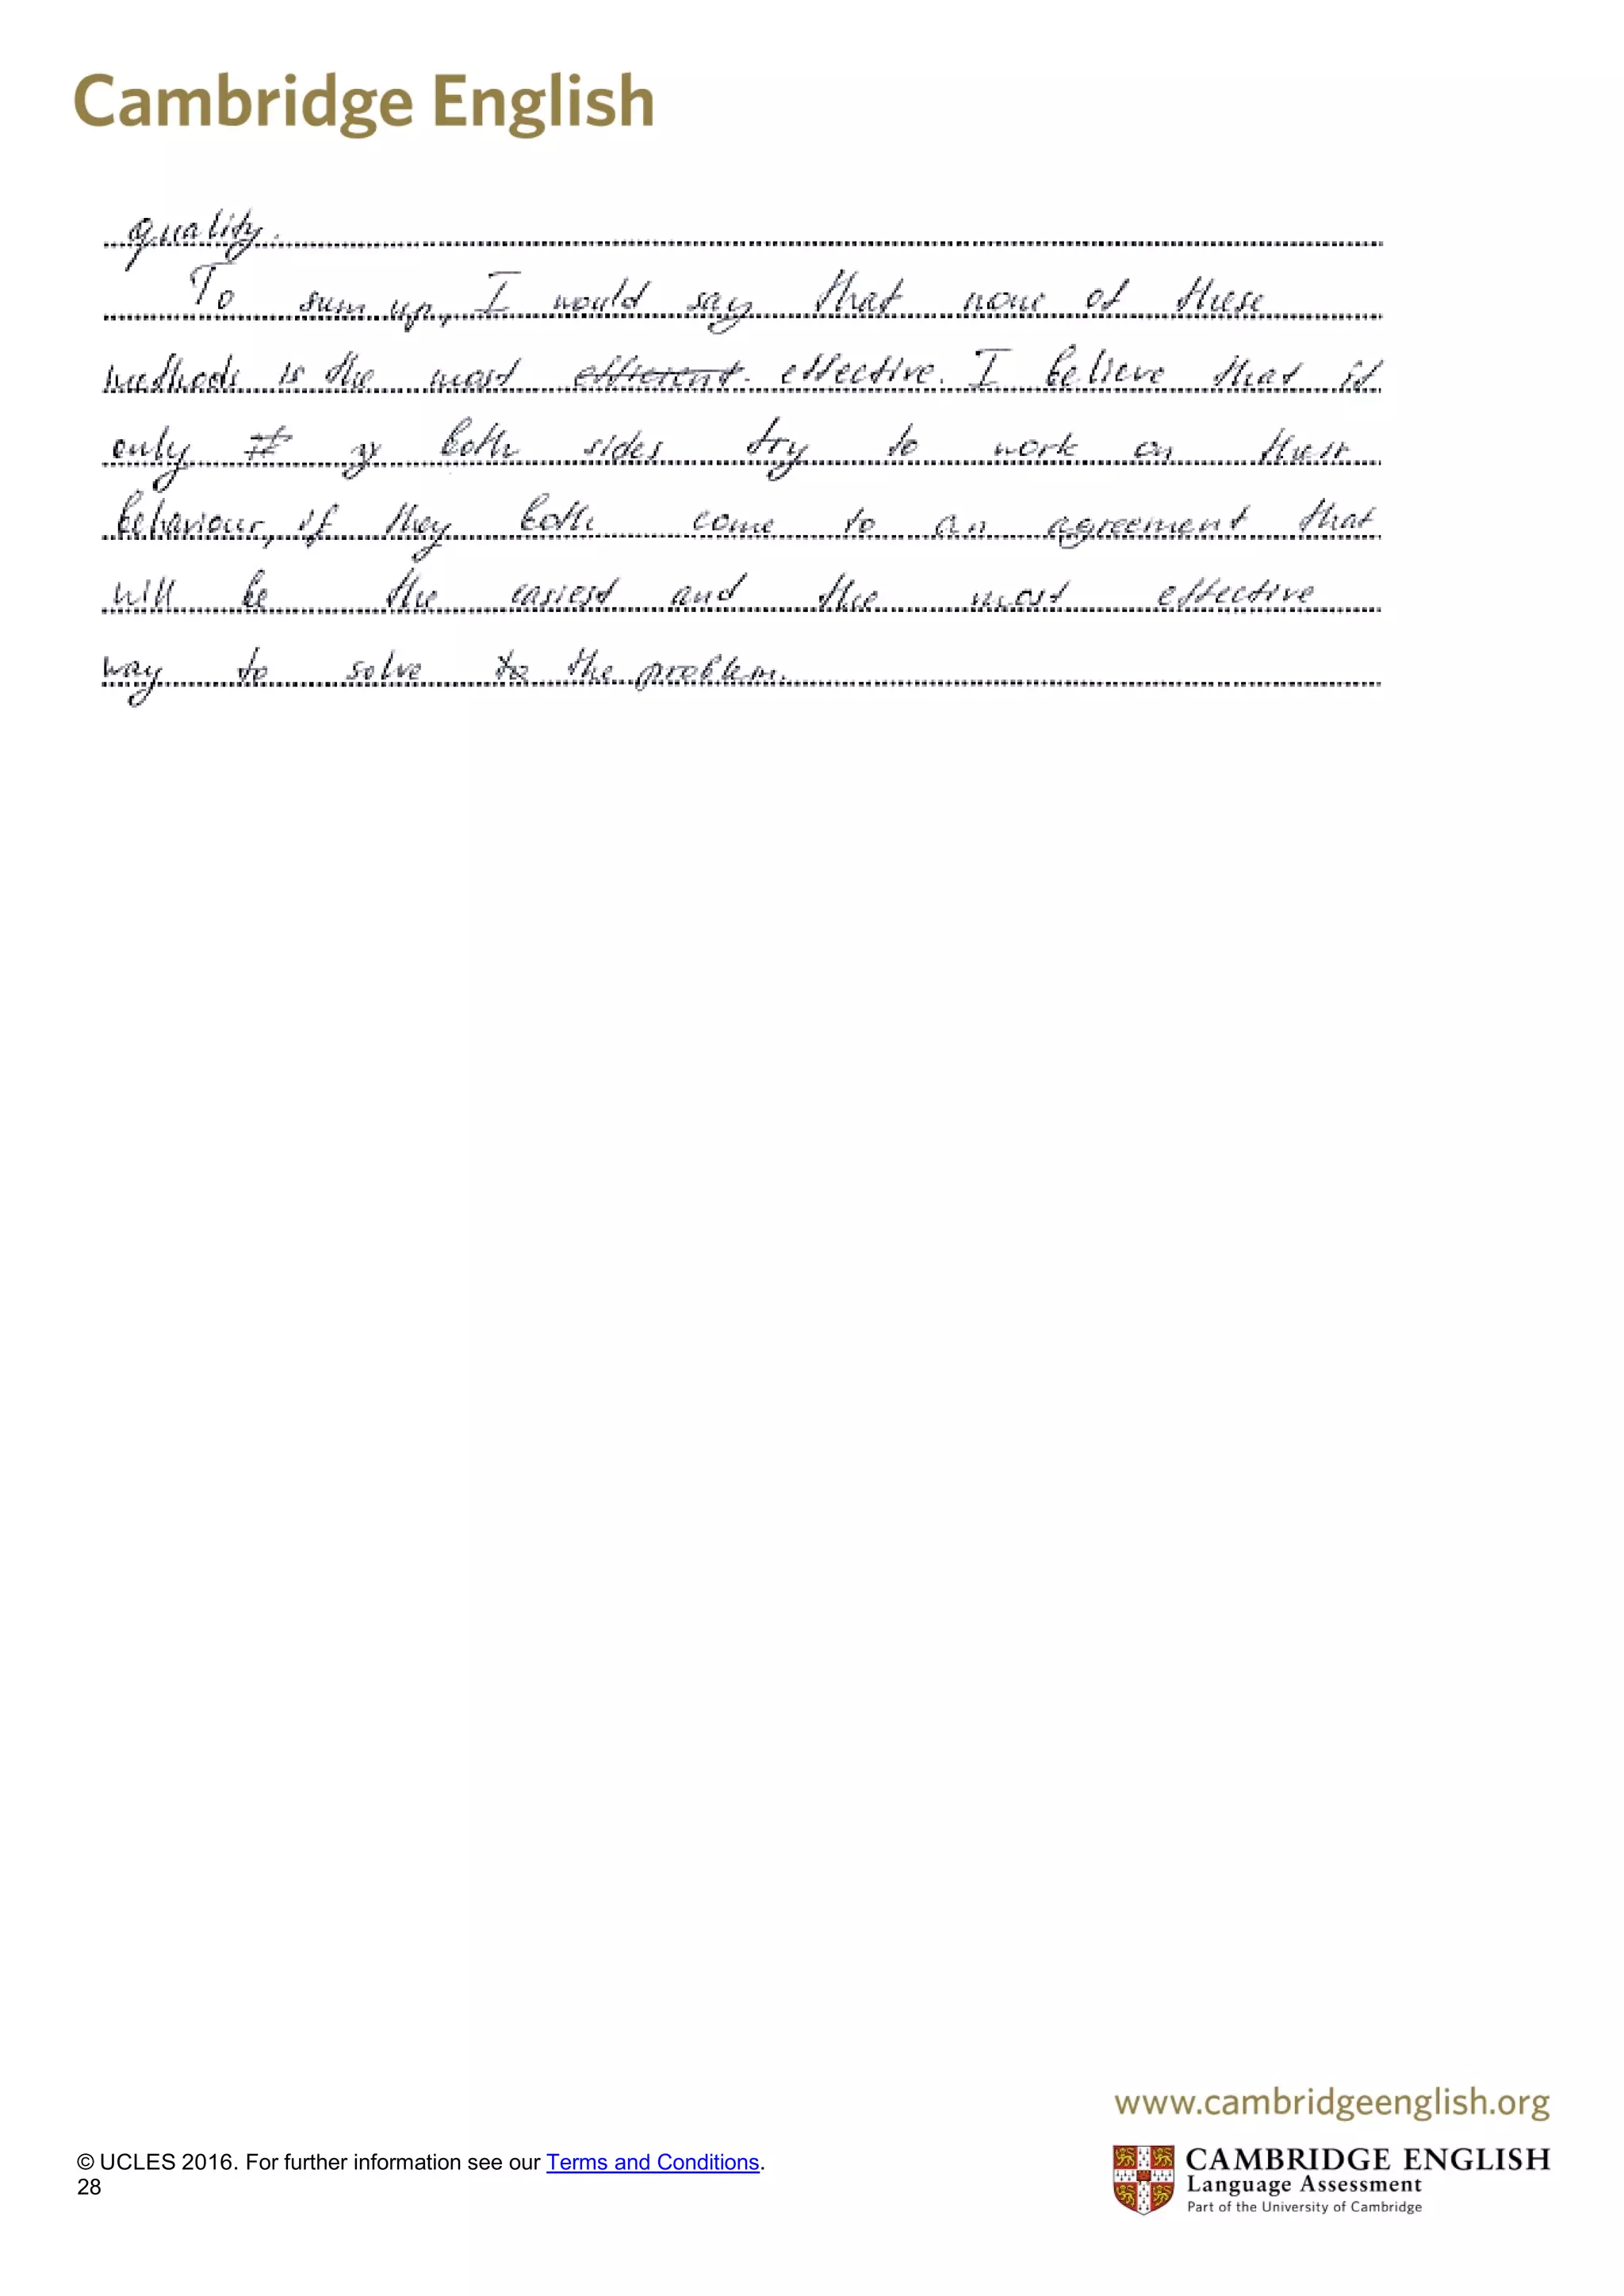 Cambridge English
quality.
To sum up, I would say that none of these
methods is the most efficient. effective. I believe that it
only both sides try to work on their
behaviour, if they both come to an agreement that
will be the easiest and the most effective
way to solve to the problem.
www.cambridgeenglish.org
© UCLES 2016. For further information see our Terms and Conditions.
28
CAMBRIDGE ENGLISH
Language Assessment
Part of the University of Cambridge